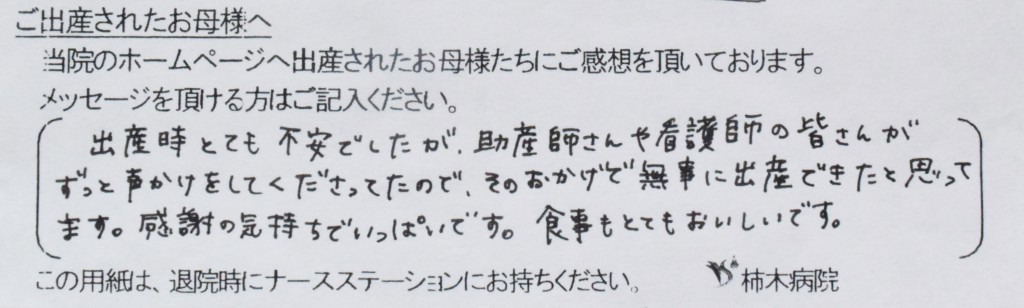 ご出産されたお母様へ
当院のホームページへ出産されたお母様たちにご感想を頂いております。
メッセージを頂ける方はご記入ください。
出産時とても不安でしたが、助産師さんや看護師の皆さんが
ずっと声かけをしてくださってたので、そのおかげで無事に出産できたと思って
ます。感謝の気持ちでいっぱいです。食事もとてもおいしいです。
この用紙は、退院時にナースステーションにお持ちください。 柿木病院